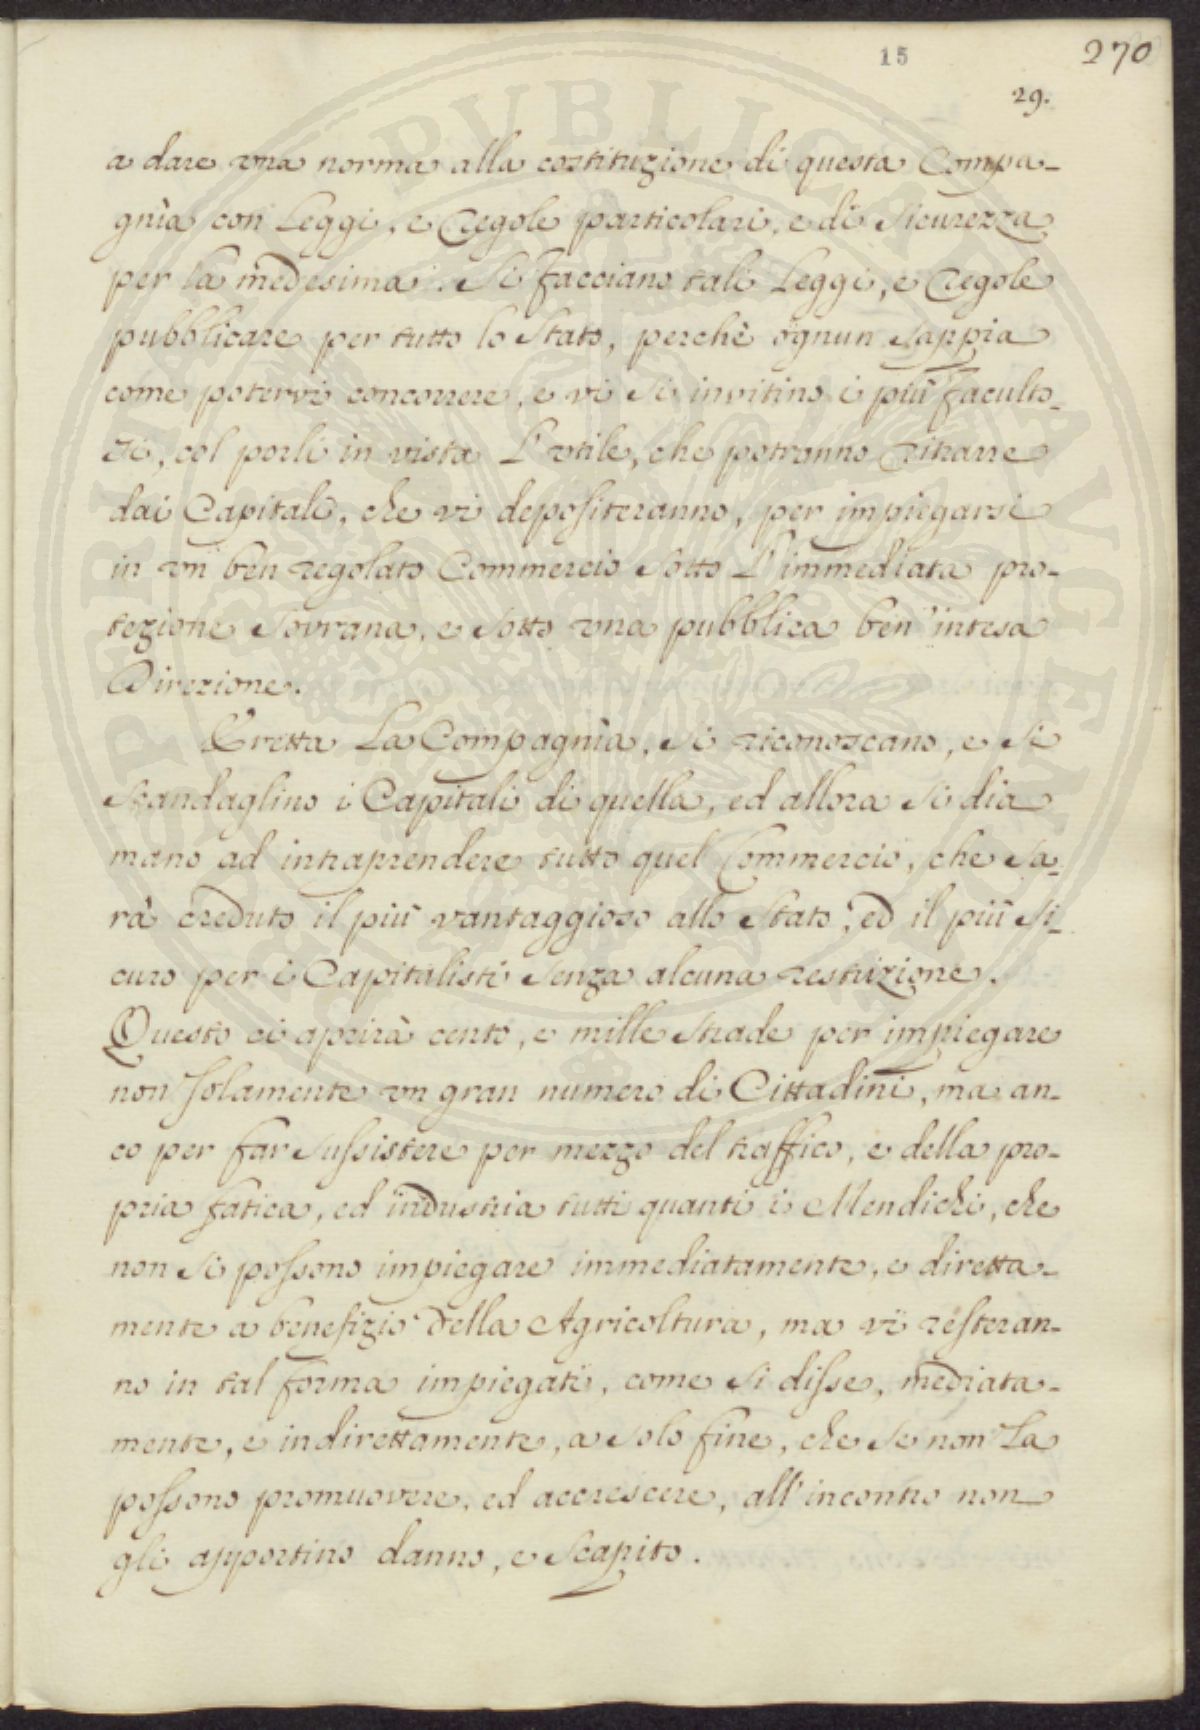 15
270
29.
a dare una norma alla costituzione di questa Compa-
gnia con Leggi, e Regole particolari, e di Sicurezza
per la medesima. Si facciano tali Leggi, e Regole
pubblicare per tutto lo Stato, perchè ognun Sappia
come potervi concorrere, e vi Si invitino i più faculto-
si, col porli in vista L'utile, che potranno Ritrarre
dai Capitali, che vi depositeranno, per impiegarsi
in un ben regolato Commercio Sotto L'immediata pro-
tezione Sovrana, e Sotto una pubblica ben'intesa
Direzione.
Eretta La Compagnia, Si riconoscano, e Si
Scandaglino i Capitali di quella, ed allora Si dia
mano ad intraprendere tutto quel Commercio, che Sa-
rà creduto il più vantaggioso allo Stato, ed il più Si-
curo per i Capitalisti Senza alcuna restrizione.
Questo ci aprirà cento, e mille Strade per impiegare
non Solamente un gran numero di Cittadini, ma an-
co per far Sussistere per mezzo del traffico, e della pro-
pria fatica, ed industria tutti quanti i Mendichi, che
non Si possono impiegare immediatamente, e diretta-
mente a benefizio della Agricoltura, ma vi resteran-
no in tal forma impiegati, come Si disse, mediata-
mente, e indirettamente, a Solo fine, che Se non La
possono promuovere, ed accrescere, all'incontro non
gli apportino danno, e Scapito.